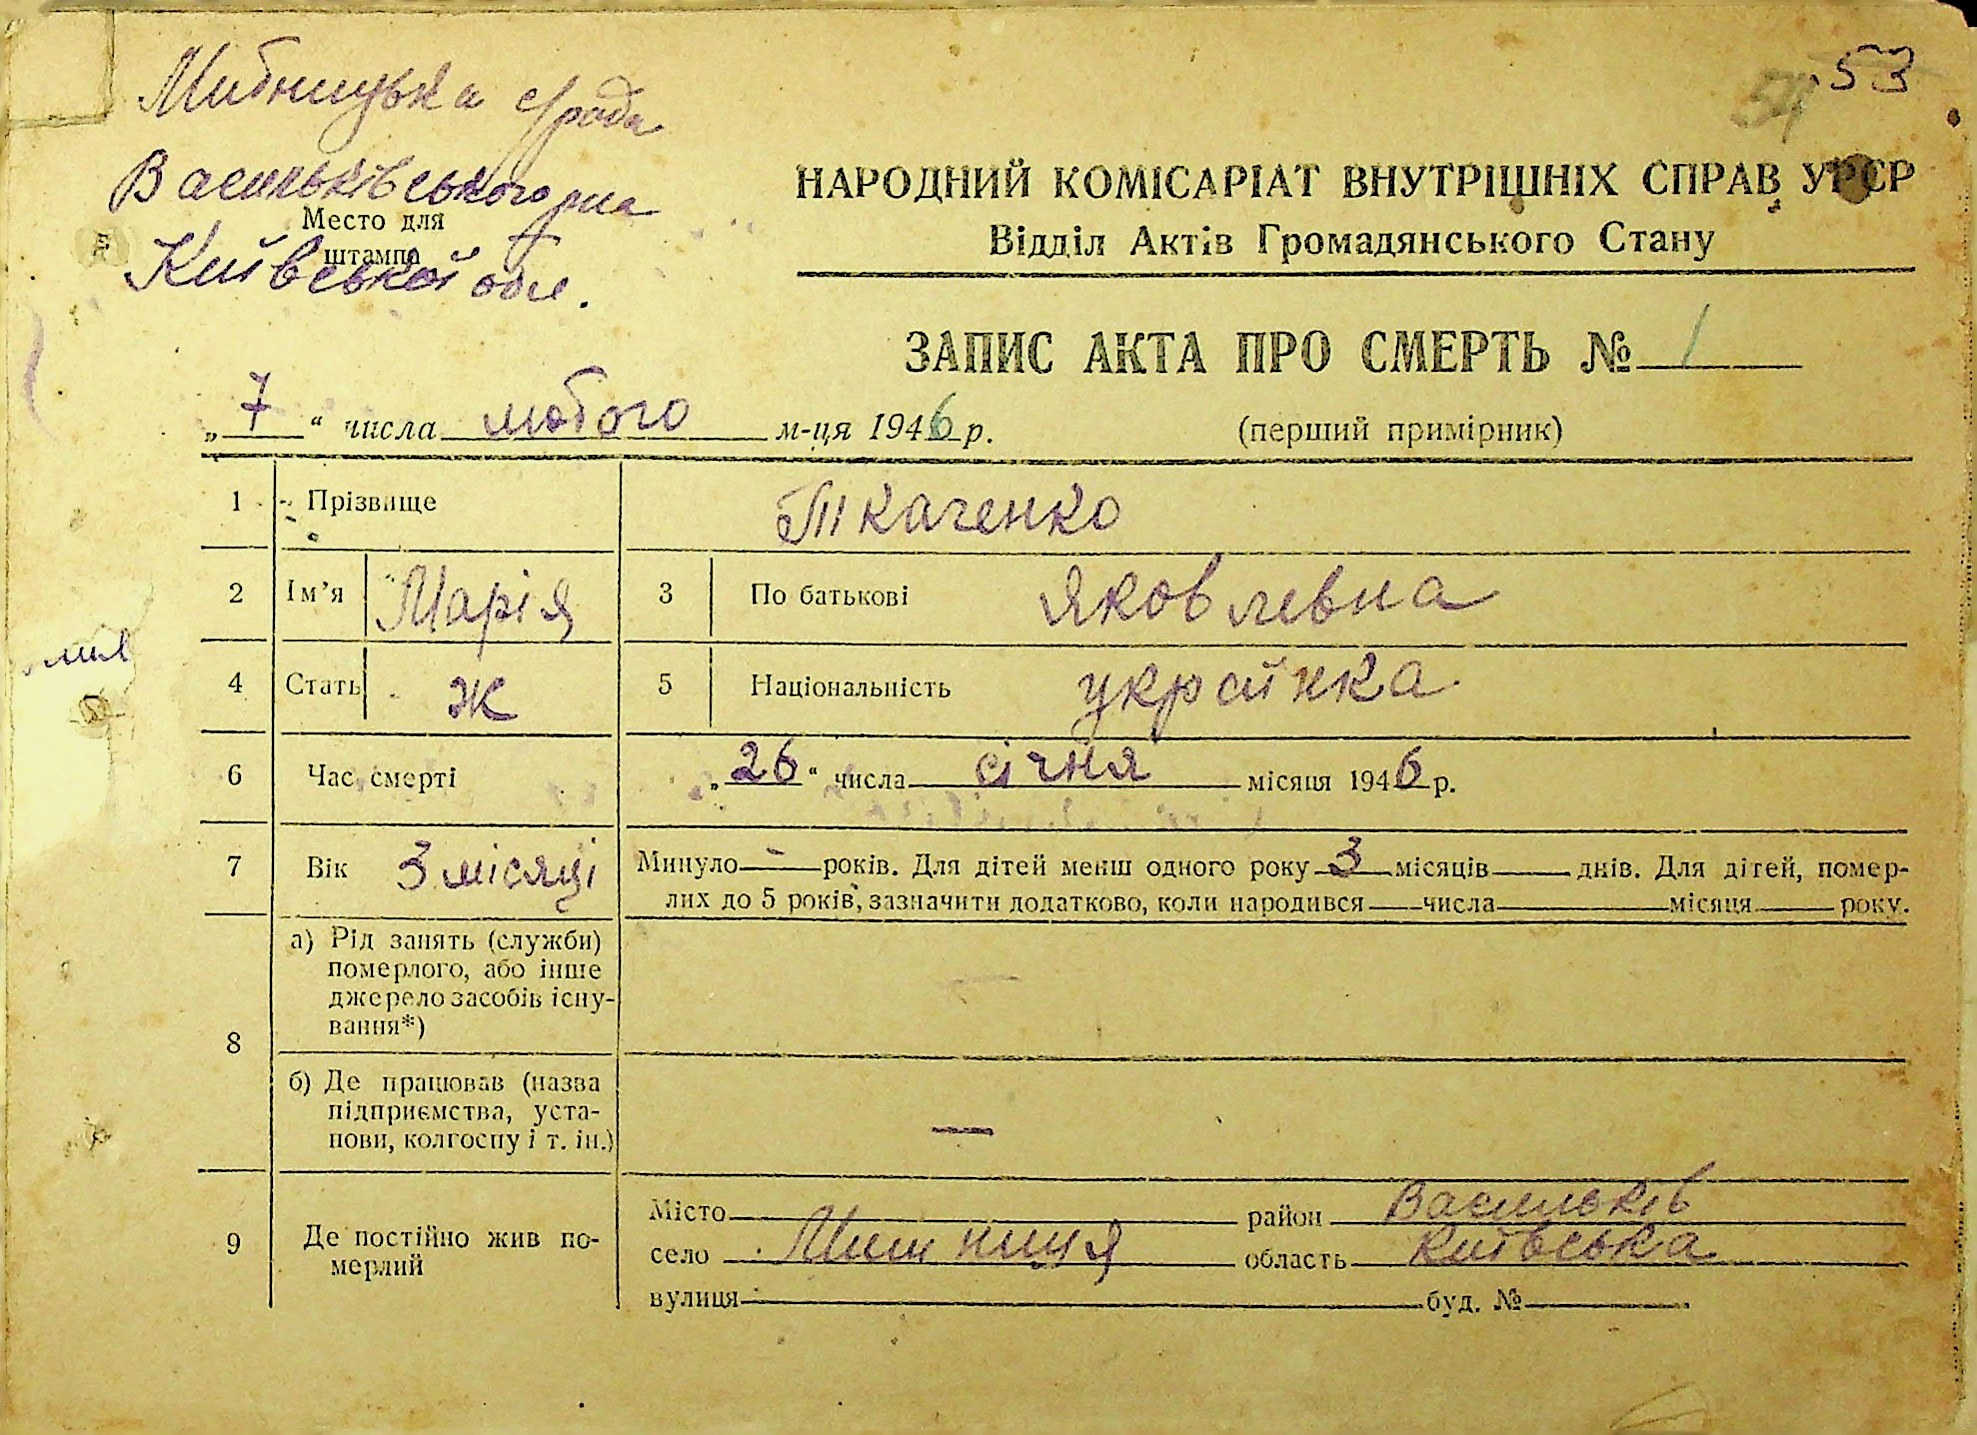 53
54
с/рада
Васильківського р-на
Місто для
штампа
Київської обл.
НАРОДНИЙ КОМІСАРІАТ ВНУТРІШНІХ СПРАВ УРСР
Відділ Актів Громадянського Стану
ЗАПИС АКТА ПРО СМЕРТЬ № 1
„7“ числа лютого м-ця 1946 р. (перший примірник)
1 Прізвище Ткаченко
2 Ім’я Марія 3 По батькові Яковлевна
4 Стать Ж 5 Національність українка
6 Час смерті „26“ числа січня місяця 1946 р.
7 Вік 3 місяці Минуло - років. Для дітей менш одного року 3 місяців днів. Для дітей, помер-
лих до 5 років, зазначити додатково, коли народився числа місяця року.
8 а) Рід занять (служби)
померлого, або інше
джерело засобів існу-
вання*)
б) Де працював (назва
підприємства, уста-
нови, колгоспу і т. ін.) —
9 Де постійно жив по-
мерлий
Місто район Васильків
село область Київська
вулиця буд. №